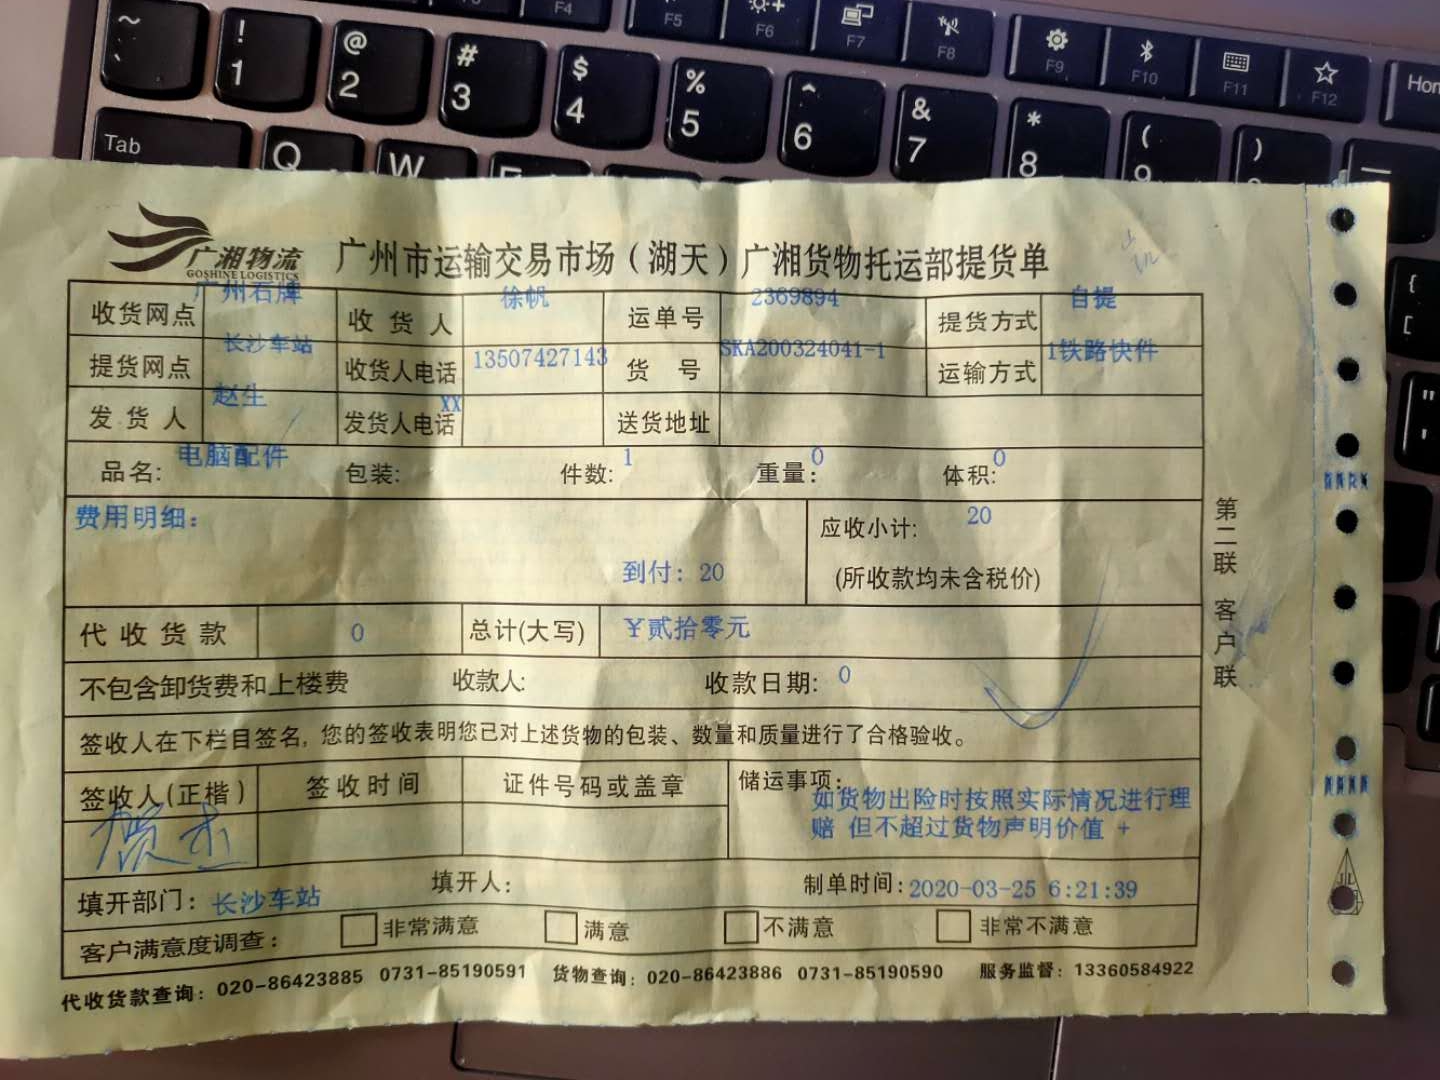 ~ ! @ # $ % ^ & * ( )
` 1 2 3 4 5 6 7 8 9
F4 F5 F6 F7 F8 F9 F10 F11 F12
Tab Q W
广湘物流
GOSHINE LOGISTICS
广州市运输交易市场（湖天）广湘货物托运部提货单
收货网点 广州石牌 收货人 徐帆 运单号 2369894 提货方式 自提
提货网点 长沙车站 收货人电话 13507427143 货号 SKA200324041-1 运输方式 1铁路快件
发货人 赵生 发货人电话 XX 送货地址
品名: 电脑配件 包装: 件数: 1 重量: 0 体积: 0
费用明细: 应收小计: 20
到付: 20 (所收款均未含税价)
代收货款 0 总计(大写) ￥贰拾零元
不包含卸货费和上楼费 收款人: 收款日期: 0
签收人在下栏目签名, 您的签收表明您已对上述货物的包装、数量和质量进行了合格验收。
签收人(正楷) 签收时间 证件号码或盖章 储运事项:
如货物出险时按照实际情况进行理
赔 但不超过货物声明价值 +
填开部门: 长沙车站 填开人: 制单时间: 2020-03-25 6:21:39
客户满意度调查: 非常满意 满意 不满意 非常不满意
代收货款查询: 020-86423885 0731-85190591 货物查询: 020-86423886 0731-85190590 服务监督: 13360584922
第二联 客户联